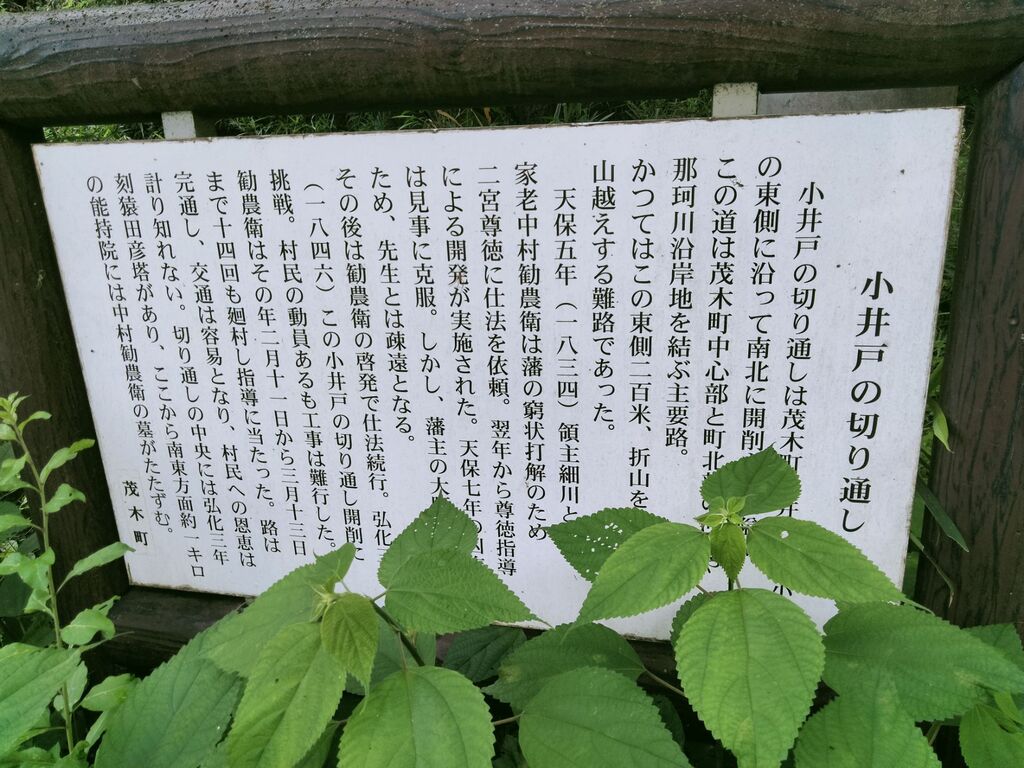 小井戸の切り通し
小井戸の切り通しは茂木町
の東側に沿って南北に開削
この道は茂木町中心部と町北
那珂川沿岸地を結ぶ主要路。
かつてはこの東側二百米、折山を
山越えする難路であった。
天保五年（一八三四）領主細川
家老中村勧農衛は藩の窮状打解のため
二宮尊徳に仕法を依頼。翌年から尊徳指導
による開発が実施された。天保七年の
は見事に克服。しかし、藩主の大
ため、先生とは疎遠となる。
その後は勧農衛の啓発で仕法続行。弘化
（一八四六）この小井戸の切り通し開削に
挑戦。村民の動員あるも工事は難行した。
勧農衛はその年二月十一日から三月十三日
まで十四回も廻村し指導に当たった。路は
完通し、交通は容易となり、村民への恩恵は
計り知れない。切り通しの中央には弘化三年
刻猿田彦塔があり、ここから南東方面約一キロ
の能持院には中村勧農衛の墓がたたずむ。
茂木町